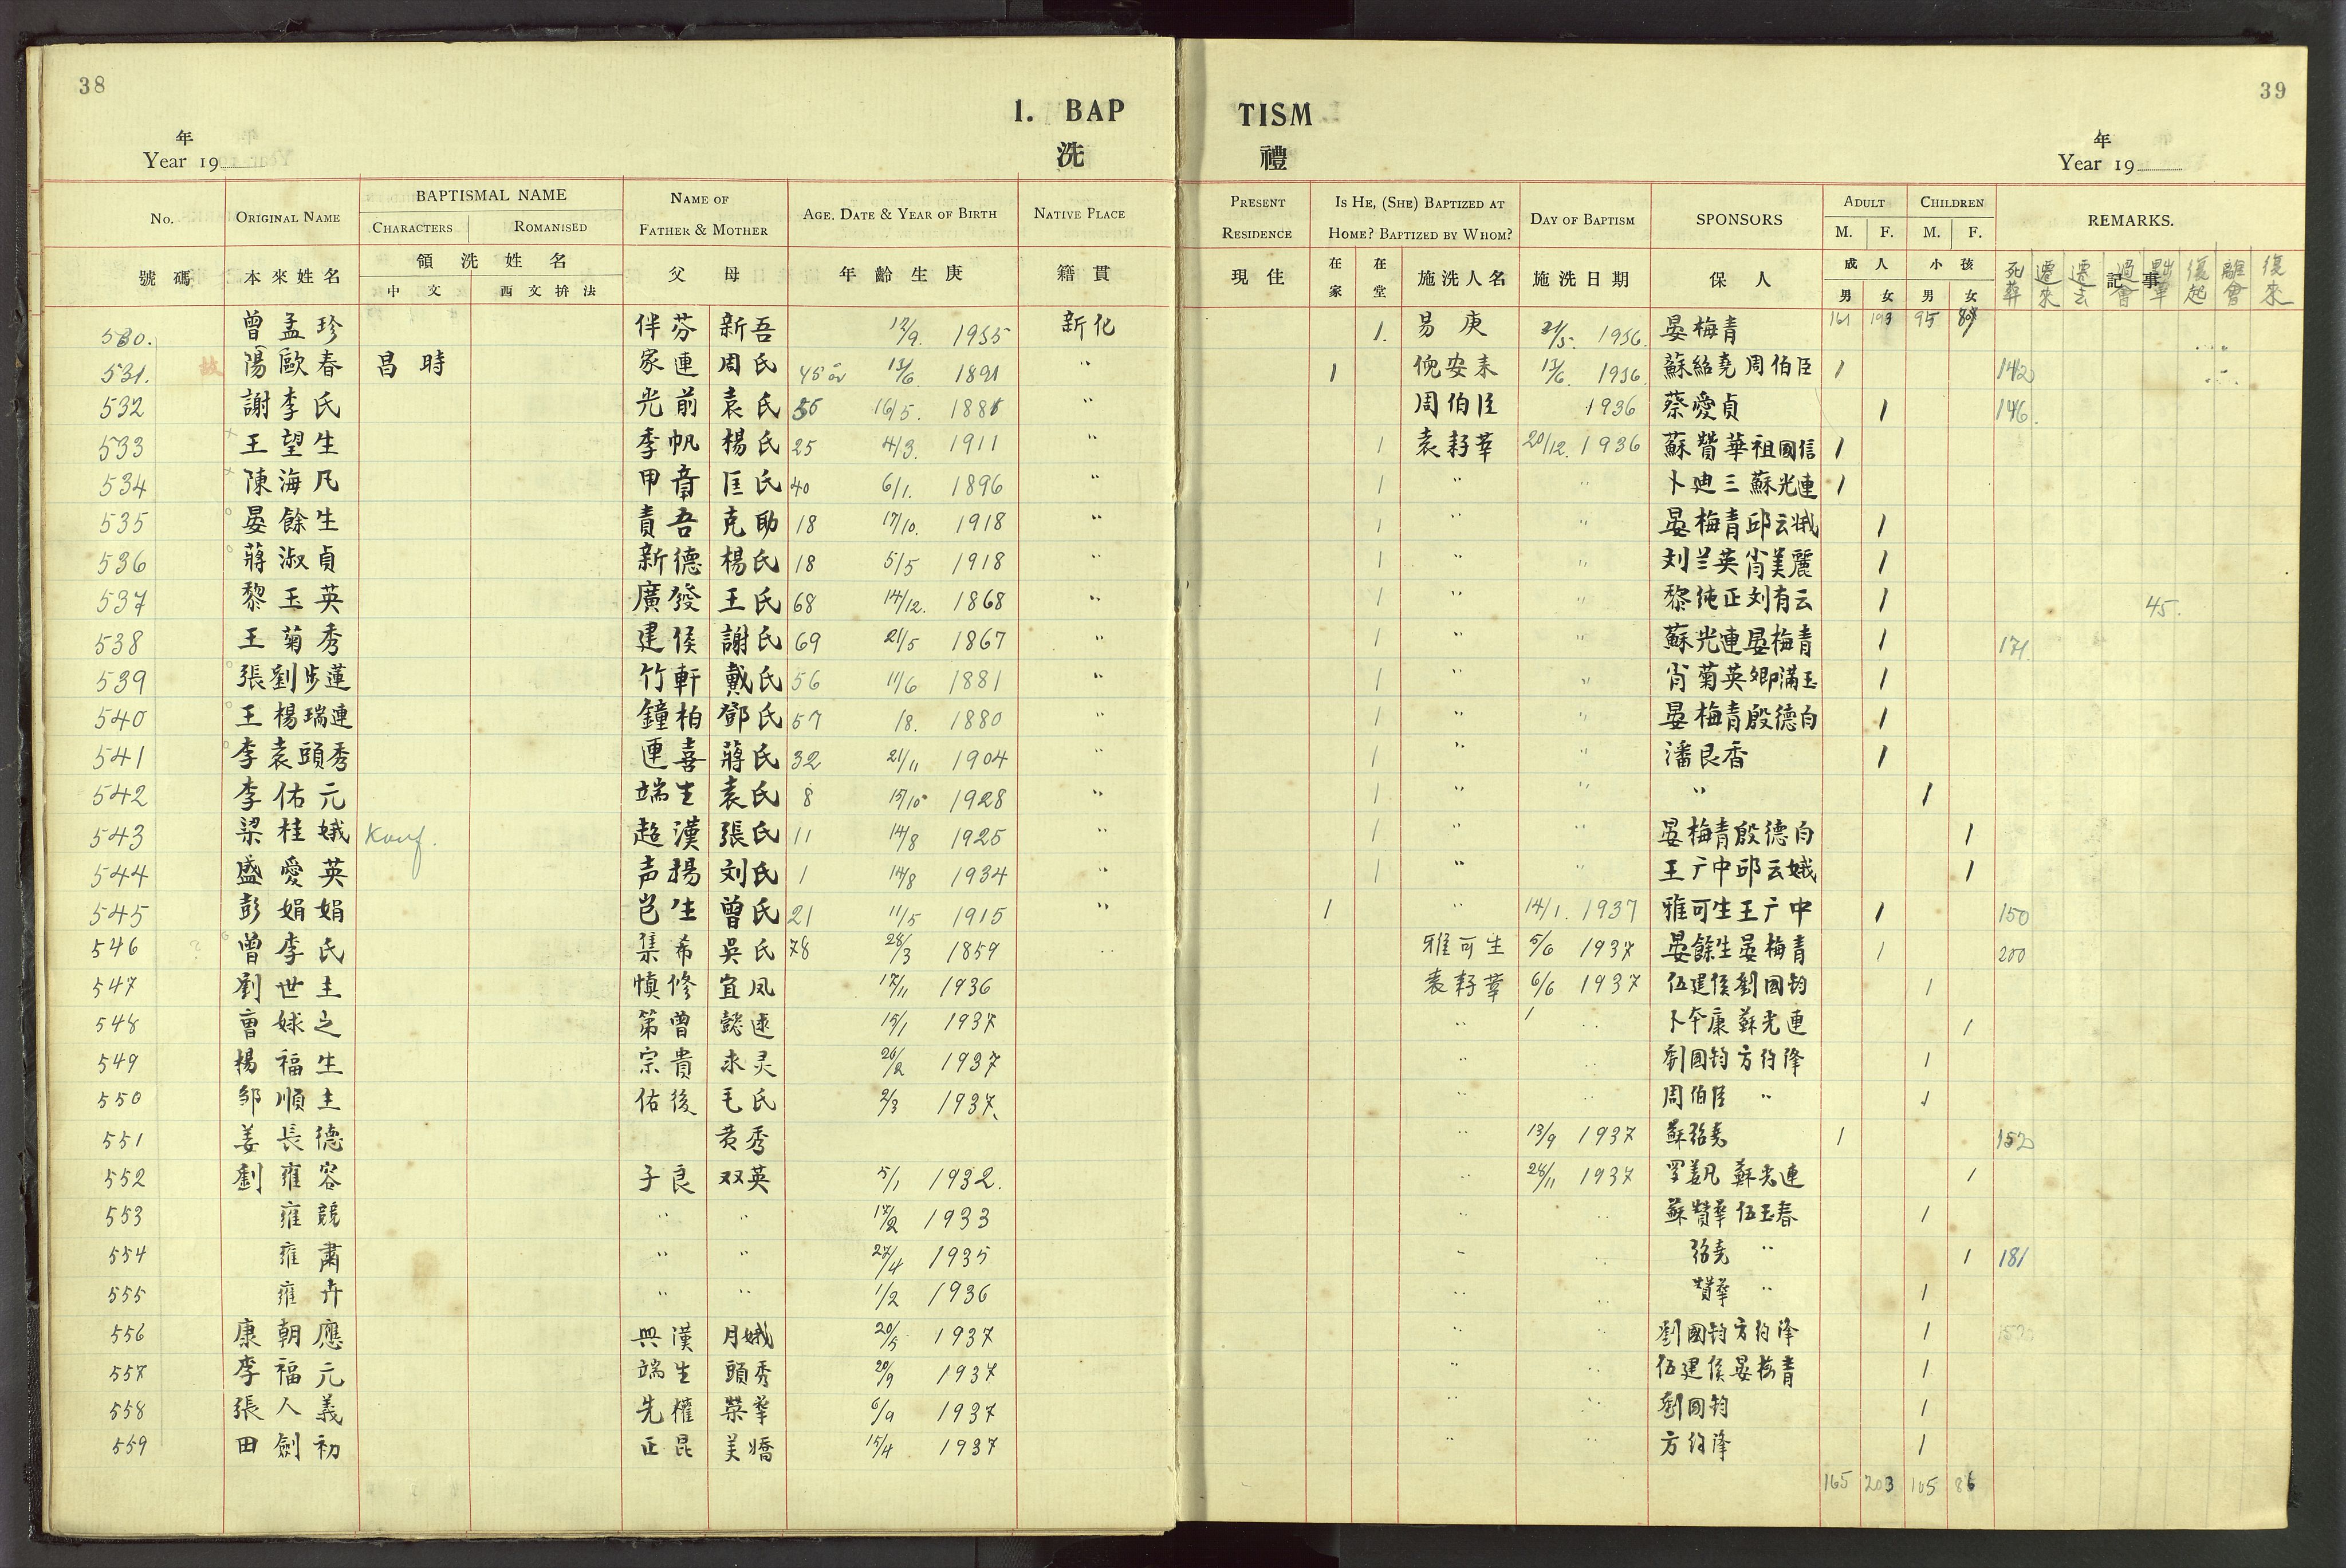 38
39
1. BAP TISM
洗 禮
年
Year 19
年
Year 19
No. ORIGINAL NAME BAPTISMAL NAME NAME OF FATHER & MOTHER AGE. DATE & YEAR OF BIRTH NATIVE PLACE PRESENT RESIDENCE IS HE, (SHE) BAPTIZED AT HOME? BAPTIZED BY WHOM? DAY OF BAPTISM SPONSORS ADULT CHILDREN REMARKS.
CHARACTERS ROMANISED M. F. M. F.
號碼 本來姓名 領洗姓名 父母 年齡生庚 籍貫 現住 在家 在堂 施洗人名 施洗日期 保人 成人 小孩 記事
中文 西文拚法 男 女 男 女
死葬 遷來 遷去 復起 離會 復來
530. 曾孟珍 伴芬 新吾 12/9. 1935 新化 1. 易庚 1936. 晏梅青 161 193 95
531. 陽歐春 昌時 家連 周氏 45 13/6 1891 " 1 倪安耒 13/6. 1936. 蘇紹堯 周伯臣 1 142
532 謝李氏 光前 袁氏 16/5. " 周伯臣 1936 蔡愛貞 1 146.
533 王望生 季帆 楊氏 25 4/3. 1911 " 1 袁耔華 20/12. 1936 蘇贊華祖國信 1
534 陳海凡 甲音 匡氏 40 6/1. 1896 " 1 " " 卜廸三 蘇光連 1
535 晏餘生 責吾 克助 18 17/10. 1918 " 1 " " 晏梅青邱云娥 1
536 蔣淑貞 新德 楊氏 18 5/5 1918 " 1 " " 刘兰英肖美麗 1
537 黎玉英 廣發 王氏 68 14/12. 1868 " 1 " " 黎純正刘有云 1 45.
538 王菊秀 建侯 謝氏 69 21/5 1867 " 1 " " 蘇光連晏梅青 1 171.
539 張劉步蓮 竹軒 戴氏 56 11/6 1881 " 1 " " 肖菊英卿滿玉 1
540 王楊瑞連 鐘柏 鄧氏 57 /8. 1880 " 1 " " 晏梅青殷德白 1
541 李袁頭秀 連喜 蔣氏 32 21/11 1904 " 1 " " 潘艮香 1
542 李佑元 端生 袁氏 8 15/10 1928 " 1 " " " 1
543 梁桂娥 Konf. 超漢 張氏 11 14/8 1925 " 1 " " 晏梅青殷德白 1
544 盛愛英 声揚 刘氏 1 14/8 1934 " 1 " " 王广中邱云娥 1
545 彭娟娟 岂生 曾氏 21 11/5 1915 " 1 " 14/1. 1937 雅可生王广中 1 150
546 ? 曾李氏 集希 吳氏 78 28/3 1859 " 雅可生 5/6 1937 晏餘生晏梅青 1 200
547 劉世主 慎修 宜凤 17/11 1936 袁耔華 6/6 1937 伍建侯劉國鈞 1
548 曹娍之 第曾 懿 15/1 1937 " " 卜本康蘇光連 1
549 楊福生 宗貴 求灵 26/2 1937 " " 劉國鈞方約澤 1
550 邹順主 佑後 毛氏 2/3 1937. " " 周伯臣 " 1
551 姜長德 黄秀 " 13/9 1937 蘇紹堯 1 152
552 劉雍容 子良 双英 5/1 1932. " 28/11 1937 罗義凡 蘇光連 1
553 雍競 " " 17/2 1933 " " 蘇贊華伍玉春 1
554 雍肅 " " 27/4 1935 " " 紹堯 " 1 181
555 雍卉 " " 1/2 1936 " " 贊華 " 1
556 康朝應 興漢 月娥 20/5 1937 " " 劉國鈞方約澤 1 152
557 李福元 端生 頭秀 20/9 1937 " " 伍建侯晏梅青 1
558 張人義 先權 榮華 6/9 1937 " " 劉國鈞 1
559 田劍初 正昆 美嬌 15/4 1937 " " 方約澤 1
165 203 105 86